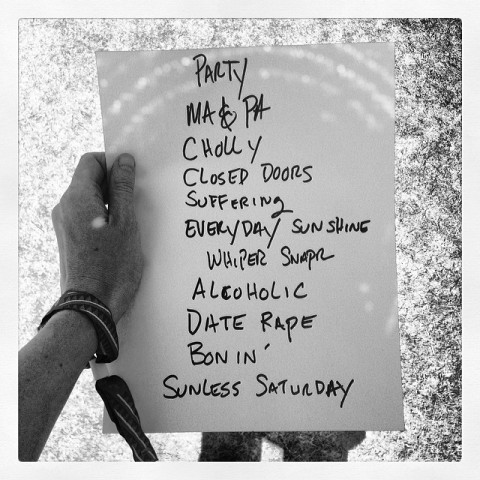 PARTY
MA & PA
CHOLLY
CLOSED DOORS
SUFFERING
EVERYDAY SUNSHINE
WHIPER SNAPR
ALCOHOLIC
DATE RAPE
BONIN'
SUNLESS SATURDAY